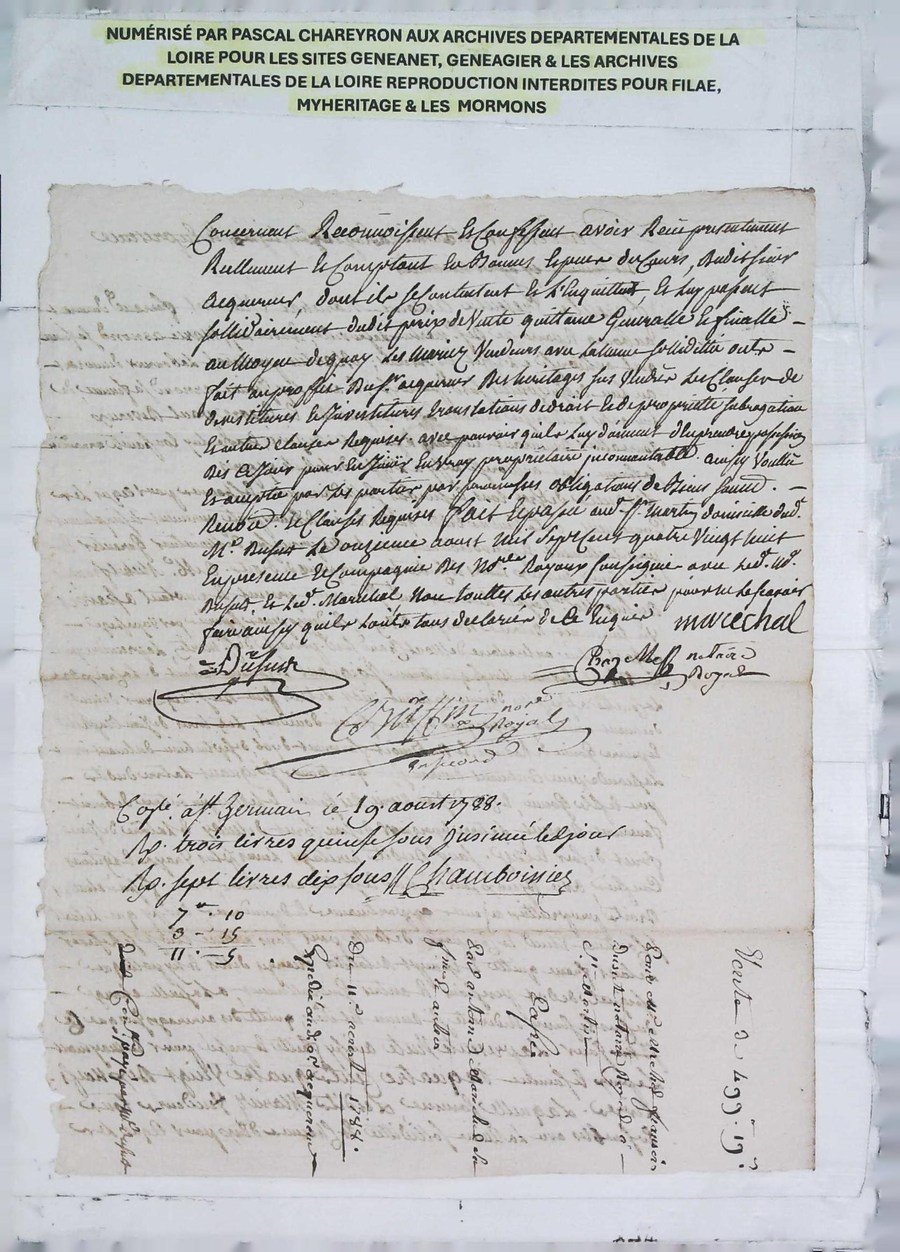 NUMÉRISÉ PAR PASCAL CHAREYRON AUX ARCHIVES DEPARTEMENTALES DE LA
LOIRE POUR LES SITES GENEANET, GENEAGIER & LES ARCHIVES
DEPARTEMENTALES DE LA LOIRE REPRODUCTION INTERDITES POUR FILAE,
MYHERITAGE & LES MORMONS
Concernant Reconnoissent Et Confessent avoir Reçu presentement
Reellement Et Comptant En Bonnes Especes du Cours, dudit sieur
acquereur, dont ils se Contentent Et L'Enquittent, Et Luy passent
sollidairement dudit prix de Vente quittance Generalle Et finalle -
au Moyen de quoy Les Mariez Vendeurs avec La meme sollidité ont -
fait au proffit Du Sr. acquereur Des heritages sus Vendus Les Clauses de
devestitures Et Investitures translations de droit Et de proprieté subrogation
Et autres Clauses Requises. avec pouvoir qu'ils Luy donnent d'En prendre possession
Des Ce Jour pour En Jouir En Vray proprietaire incommutable. ainsy Voullu
Et accepté par Les parties par promesses obligations de Biens soumd. -
Renond. Et Clauses Requises fait Et passé aud. St. Martin domicille dud.
Me. Dusust Le onzieme aoust mil Sept Cent quatre Vingt huit
En presence Et Compagnie Des Nores Royaux soussignés avec Led. Me.
Dusust Et Led. Marechal Non touttes Les autres parties pour ne Le sçavoir
faire ainsy qu'ils L'ont tous declarés de Ce Enquis marechal
Dusust
notaire
Royal
nore
Royal
Collé à St Germain le 19. aoust 1788.
Rp. trois livres quinse sous Jnsinué led. jour
Rp. sept livres dix sous Chamboissier
7 10
3 - 15
11 - 5
Vente De 499 19
Pour Me Michel
Dusust notaire Royal à -
St. Martin
Par antoine Marechal
sa femme Et autres
Du 11e aoust 1788.
Expedié audit Sr. acquereur